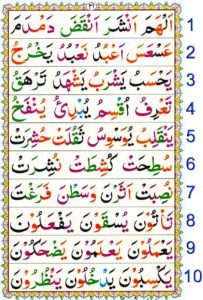 اَلْهَمَ اَنْشَرَ اَنْقَضَ دَمْدَمَ 1
عَسْعَسَ اَعْبُدُ نَعْبُدُ يَخْرُجُ 2
يَحْسَبُ يَشْرَبُ يَشْهَدُ تَرْهَقُ 3
تَعْرِفُ اُقْسِمُ يُبْدِئُ يُنْفَخُ 4
يَنْقَلِبُ يُوَسْوِسُ ثَقُلَتْ حُشِرَتْ 5
سُطِحَتْ كُشِطَتْ نُشِرَتْ 6
نُصِبَتْ اَثَرْنَ وَسَطْنَ فَرَغْتَ 7
تَأْتُوْنَ يُسْقَوْنَ يَفْعَلُوْنَ 8
يَعْمَلُوْنَ يَعْلَمُوْنَ يَضْحَكُوْنَ 9
يَكْسِبُوْنَ يَدْخُلُوْنَ يَنْظُرُوْنَ 10